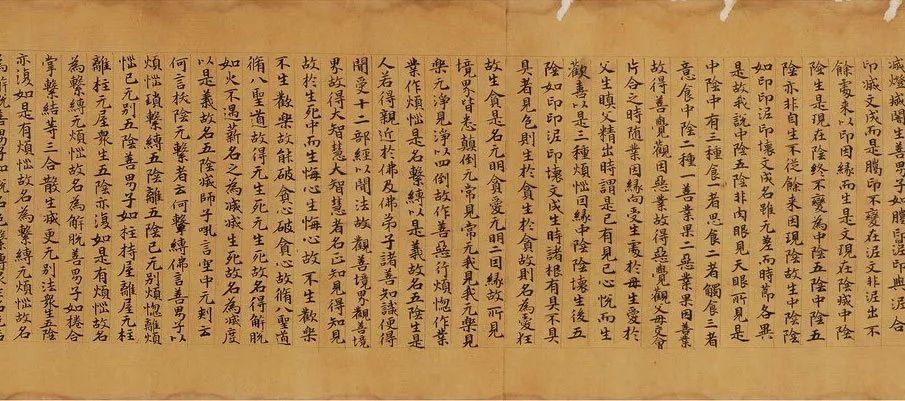 滅燈滅闇生善男子如臈印印泥印與泥合
印滅文成而是臈印不變在泥文非泥出不
餘處來以印因緣而生是文現在陰滅中陰
陰生是現在陰終不變為中陰五陰中陰五
陰亦非自生不從餘來因現陰故生中陰陰
如印印泥印壞文成名雖无差而時節各異
是故我說中陰五陰非肉眼見天眼所見是
中陰中有三種食一者思食二者觸食三者
意食中陰二種一善業果二惡業果因善業
故得善覺觀因惡業故得惡覺觀父母交會
片合之時随業因緣向受生處於母生愛於
父生瞋父精出時謂是已有見已心悅而生
歡喜以是三種煩惱因緣中陰陰壞生後五
陰如印印泥印壞文成生時諸根有具不具
具者見色則生於貪生於貪故則名為愛狂
故生貪是名无明貪愛无明二因緣故所見
境界皆悉顛倒无常見常无我見我无樂見
樂无淨見淨以四倒故作善惡行煩惱作業
業作煩惱是名繫縛以是義故名五陰生是
人若得親近於佛及佛弟子諸善知識便得
聞受十二部經以聞法故觀善境界觀善境
界故得大智慧大智慧者名正知見得知見
故於生死中而生悔心生悔心故不生歡樂
不生歡樂故能破貪心破貪心故脩八聖道
脩八聖道故得无生死无生死故名得解脫
如火不遇薪名之為滅滅生死故名為滅度
以是義故名五陰滅師子吼言空中无刾云
何言拔陰无繫者云何繫縛佛言善男子以
煩惱鏁繫縛五陰離五陰已无別煩惱離煩
惱已无別五陰善男子如柱持屋離屋无柱
離柱无屋眾生五陰亦復如是有煩惱故名
為繫縛无煩惱故名為解脫善男子如捲合
掌繫結等三合散生滅更无別法眾生五陰
亦復如是有煩惱故名為繫縛无煩惱故名
為解脫善男子如說名色繫縛眾生